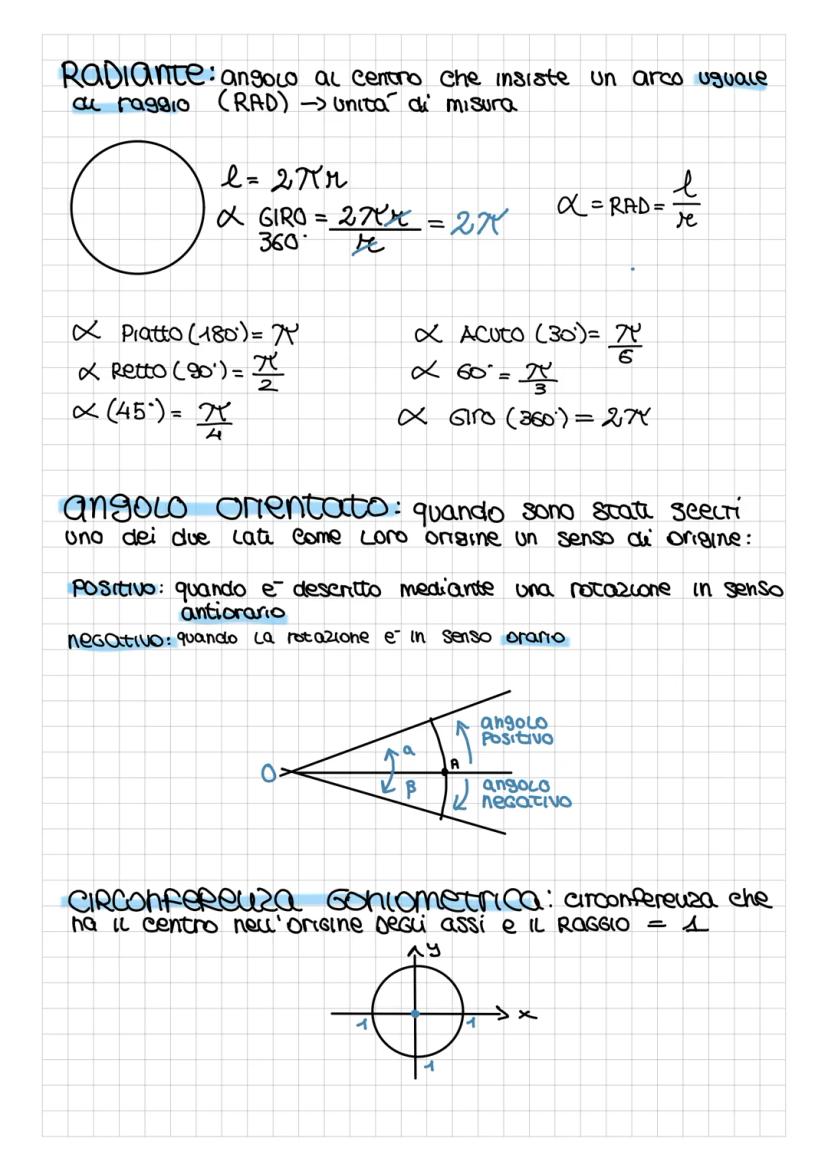 RADIANTE: angolo al centro che insiste un arco uguale
al raggio (RAD) → unità di misura
l = 2πr
α GIRO = 2πr/r = 2π
360°
α = RAD = l/r
α Piatto (180°) = π
α Retto (90°) = π/2
α (45°) = π/4
α ACUTO (30°) = π/6
α 60° = π/3
α GIRO (360°) = 2π
angolo orientato: quando sono stati scelti
uno dei due lati come loro origine un senso di origine:
POSITIVO: quando è descritto mediante una rotazione in senso
antiorario
negativo: quando la rotazione è in senso orario
angolo
positivo
a
O
A
β
angolo
negativo
CIRCONFERENZA GONIOMETRICA: circonferenza che
ha il centro nell'origine degli assi e il RAGGIO = 1
y
x
1
1
1